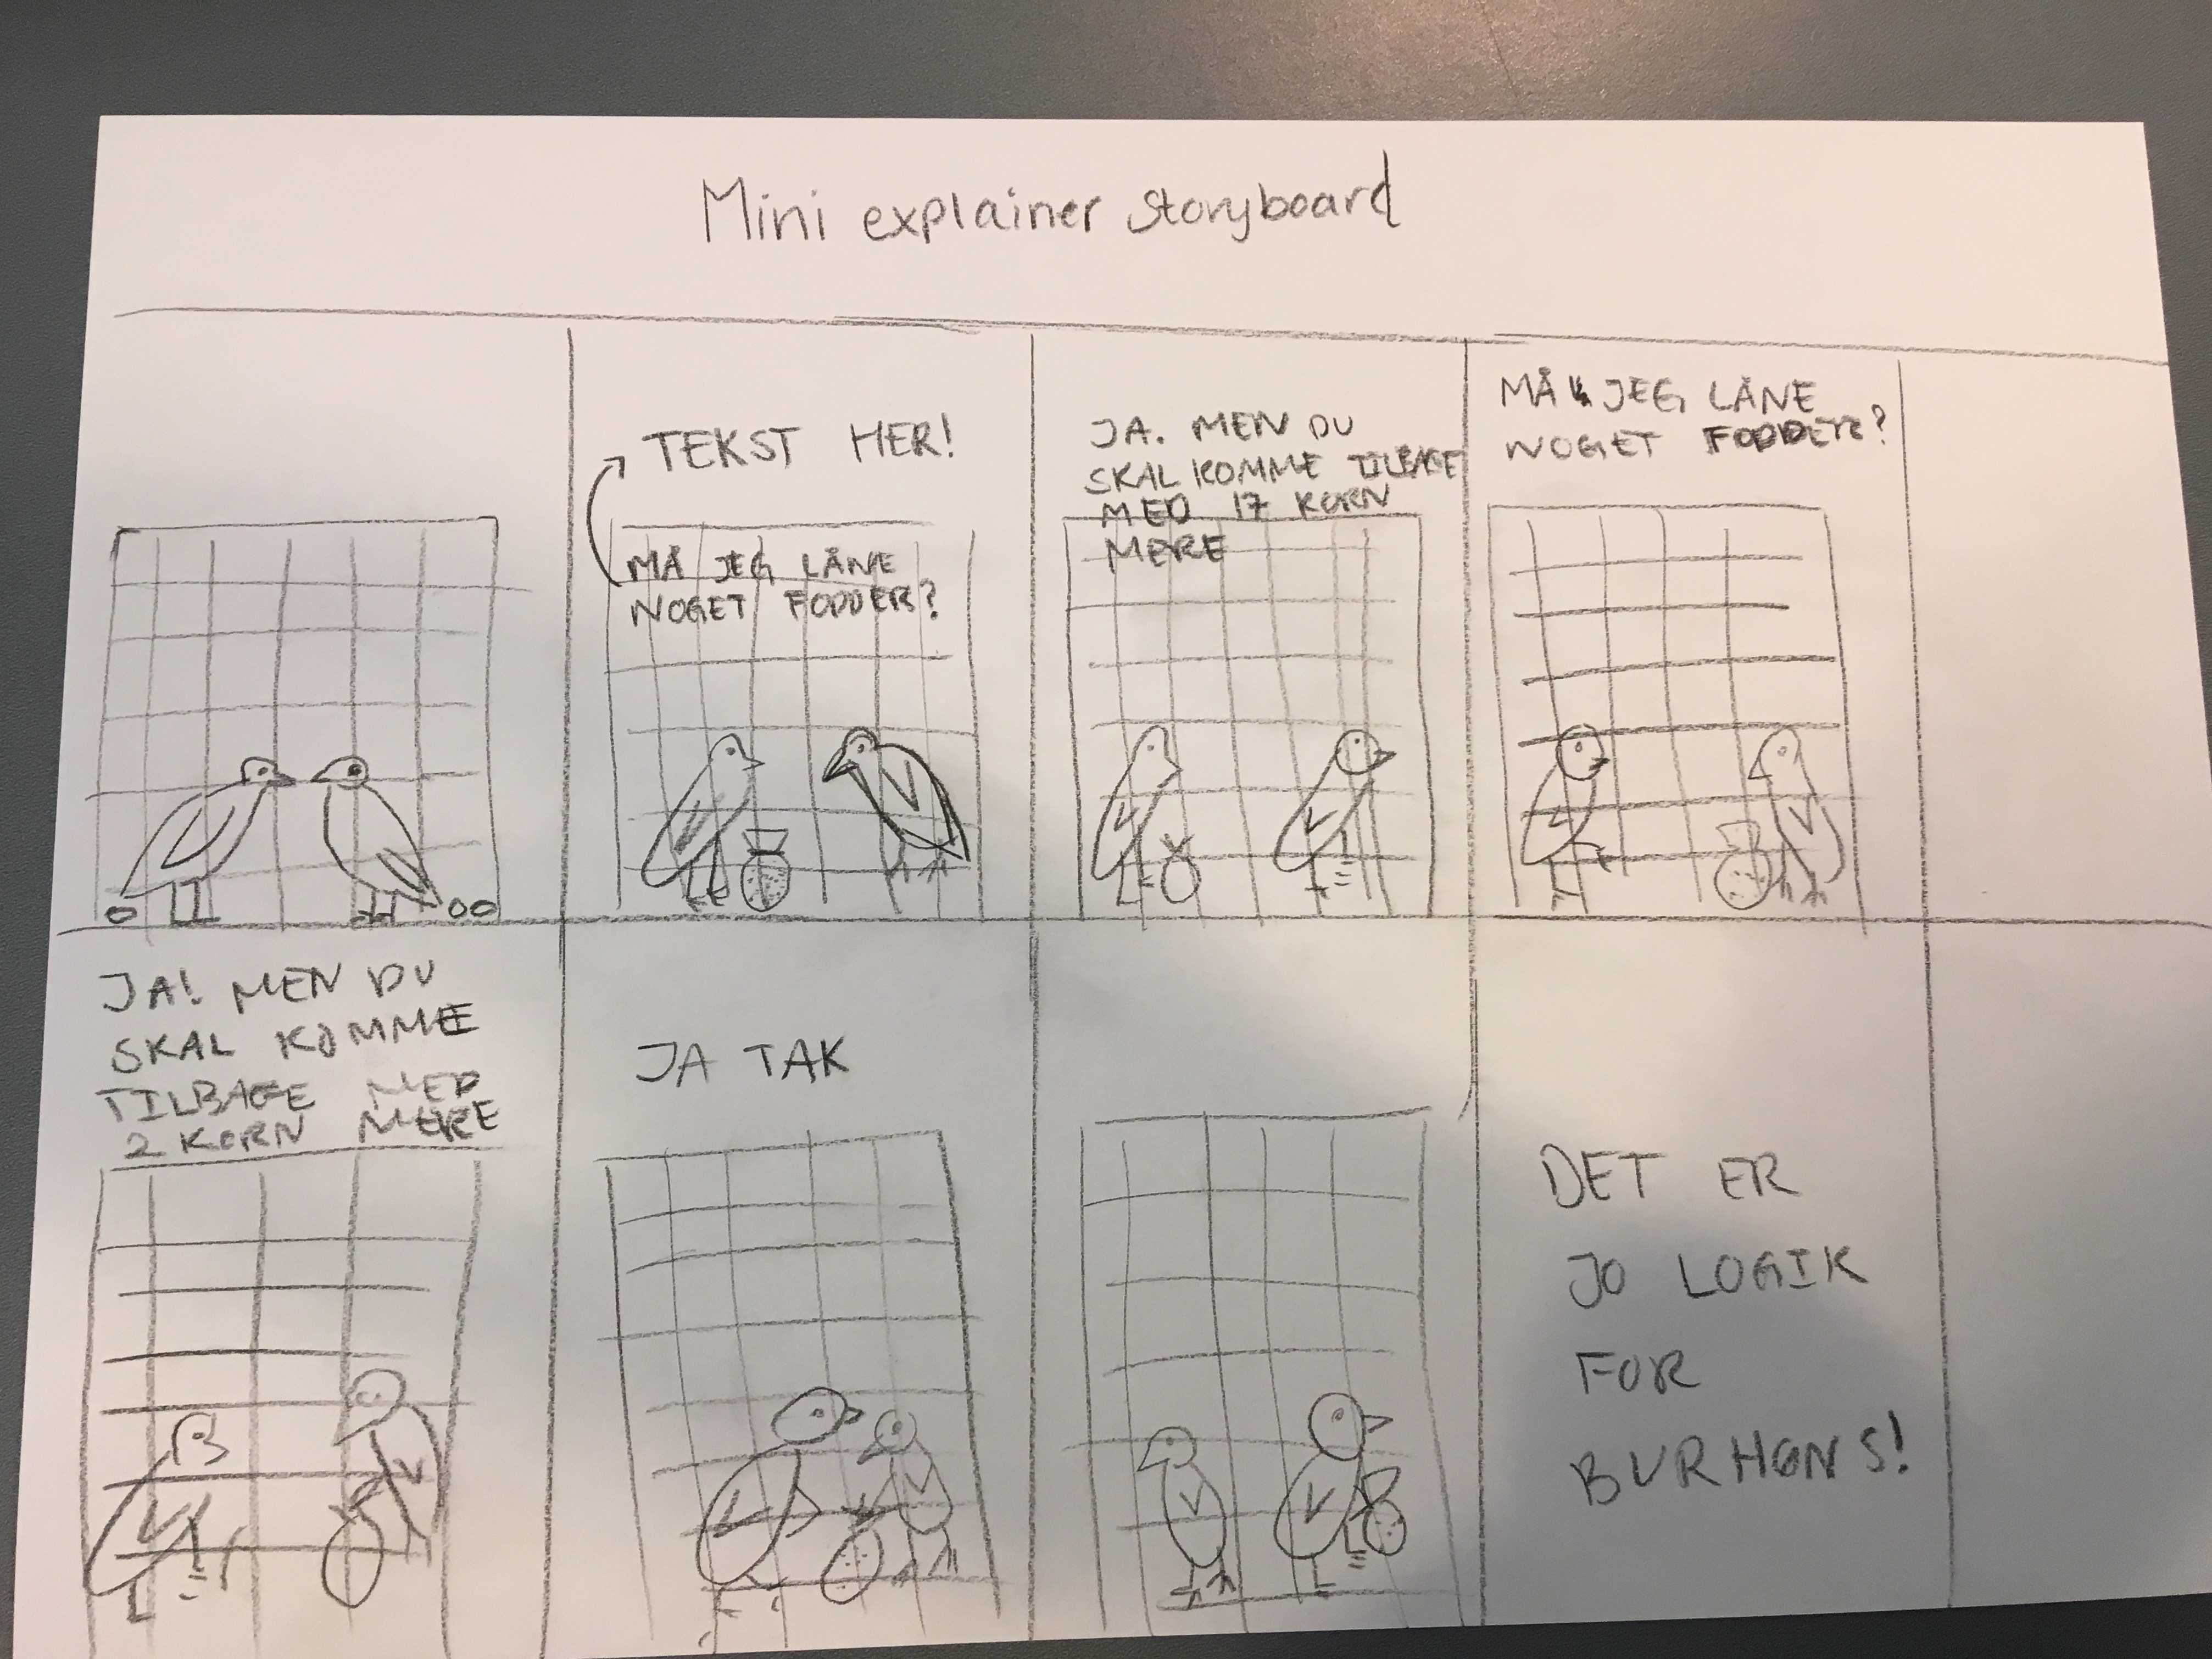 Mini explainer storyboard
TEKST HER!
MÅ JEG LÅNE
NOGET FODDER?
JA. MEN DU
SKAL KOMME TILBAGE
MED 17 KORN
MERE
MÅ JEG LÅNE
NOGET FODDER?
JA! MEN DU
SKAL KOMME
TILBAGE MED
2 KORN MERE
JA TAK
DET ER
JO LOGIK
FOR
BURHØNS!